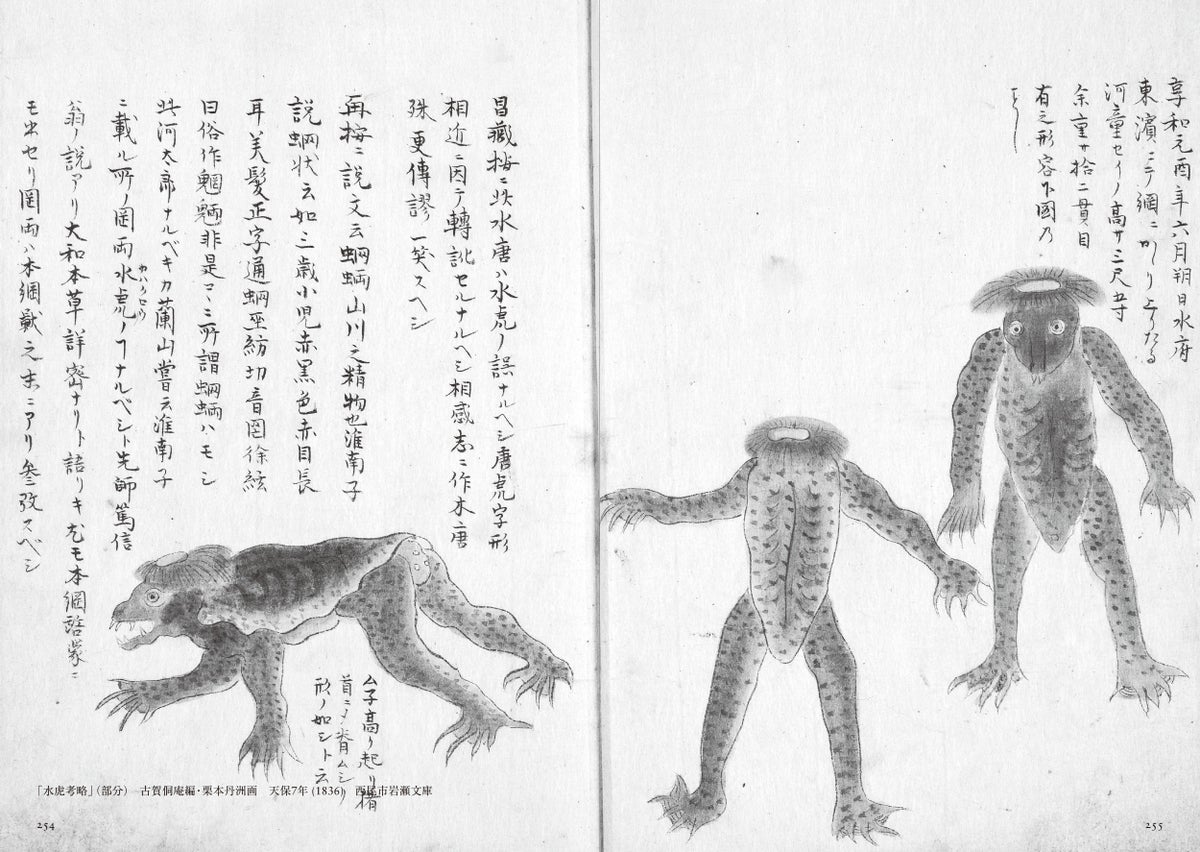 享和元酉年六月朔日水府
東濱ニテ網ニかゝり上りたる
河童セイノ高サ三尺五寸
余重サ拾二貫目
有之形容下圖乃
ことし
昌藏按ニ此水唐ハ水虎ノ誤ナルヘシ唐虎字形
相近ニ因テ轉訛セルナルヘシ相感志ニ作木唐
殊更傳謬一笑スヘシ
再按ニ説文云蝄蜽山川之精物也淮南子
説蝄状云如三歳小児赤黒色赤目長
耳美髪正字通蝄巫紡切音罔徐絃
曰俗作魍魎非是コヽニ所謂蝄蜽ハモシ
此河太郎ナルベキカ蘭山嘗云淮南子
ニ載ル所ノ罔両水虎ノヿナルベシト先師篤信
翁ノ説アリ大和本草詳密ナリト語リキ尤モ本綱啓蒙ニ
モ出セリ罔両ハ本綱獣之末ニアリ参攷スベシ
ム子高ク起リ猪
首ニメ脊ムシノ
形ノ如シト云
「水虎考略」（部分）　古賀侗庵編・栗本丹洲画　天保7年 (1836)　西尾市岩瀬文庫
254
255